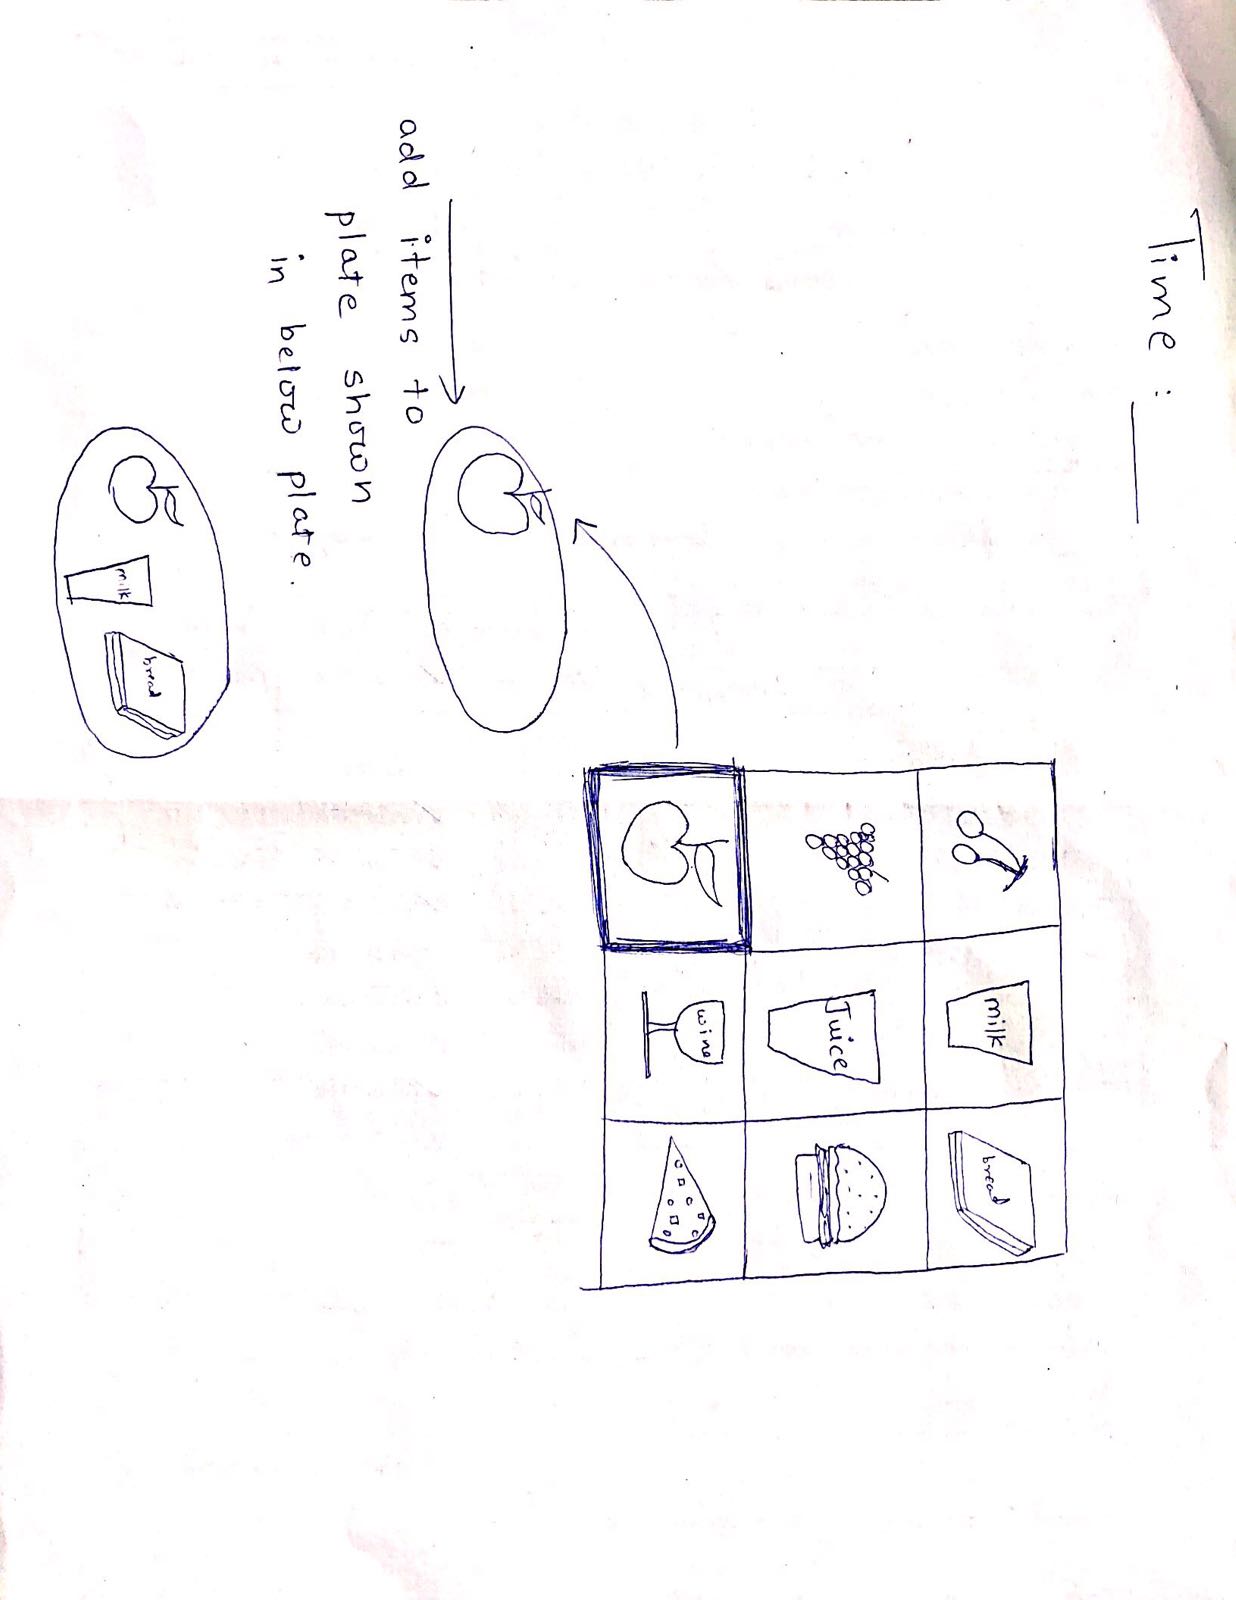 Time : ____
milk
bread
Juice
wine
add items to
plate shown
in below plate.
milk
bread